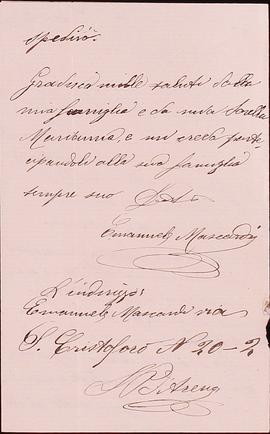 spedirò.
Gradisca mille saluti da la
mia famiglia e da mia Sorella
e mi creda
alla sua famiglia
sempre suo
Emanuele Mascardi
L'indirizzo:
Emanuele Mascardi via
S. Cristoforo N 20-2